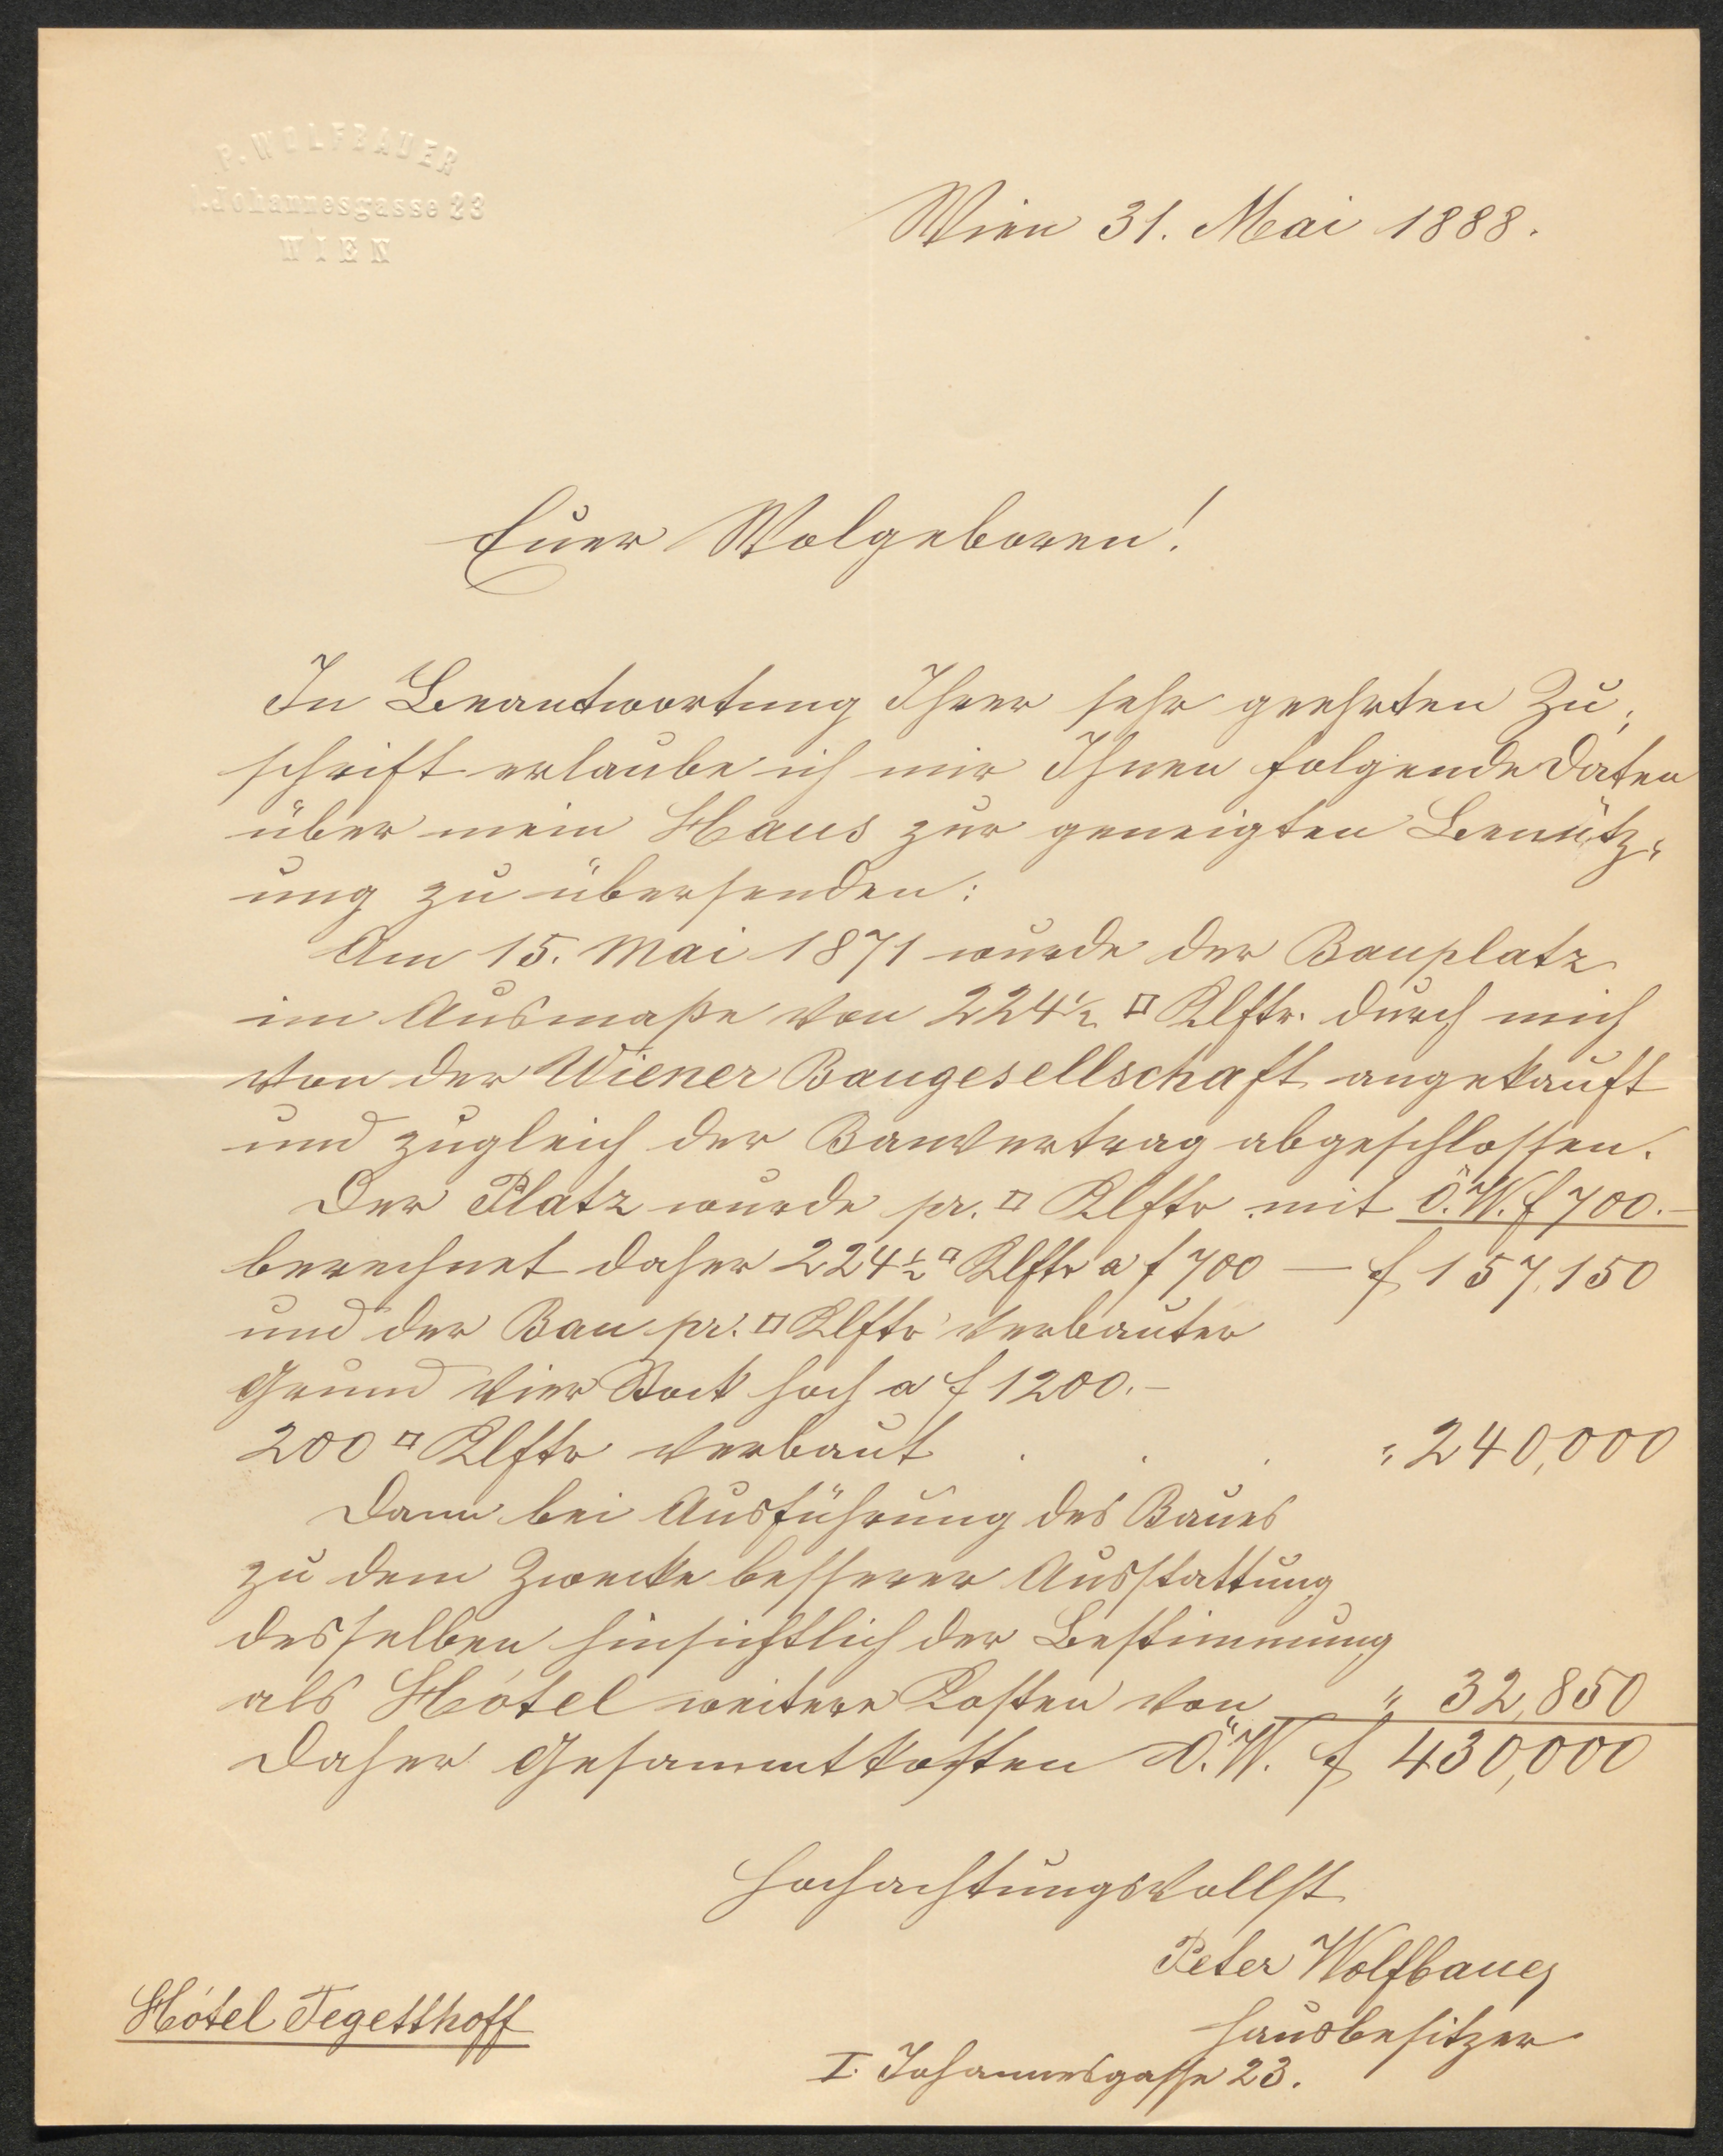 P. WOLFBAUER
I. Johannesgasse 23
WIEN
Wien 31. Mai 1888.
Euer Wolgeboren!
In Beantwortung Ihrer sehr geehrten Zu„
schrift erlaube ich mir Ihnen folgende Daten
über mein Haus zur geneigten Benütz„
ung zu übersenden:
Am 15. Mai 1871 wurde der Bauplatz
im Ausmaße von 224½ □ Klftr. durch mich
von der Wiener Baugesellschaft angekauft
und zugleich der Bauvertrag abgeschlossen.
Der Platz wurde pr. □ Klftr mit Ö.W. f 700.—
berechnet daher 224½ □ Klftr a f 700 — f 157,150
und der Bau pr. □ Klftr verbauter
Grund vier Stock hoch a f 1200.—
200 □ Klftr verbaut . . . „ 240,000
Dann bei Ausführung des Baues
zu dem Zwecke besserer Ausstattung
desselben hinsichtlich der Bestimmung
als Hótel weitere Kosten von „ 32,850
Daher Gesammtkosten Ö.W. f 430,000
Hochachtungsvollst
Peter Wolfbauer
Hausbesitzer
Hótel Tegetthoff
I. Johannesgasse 23.